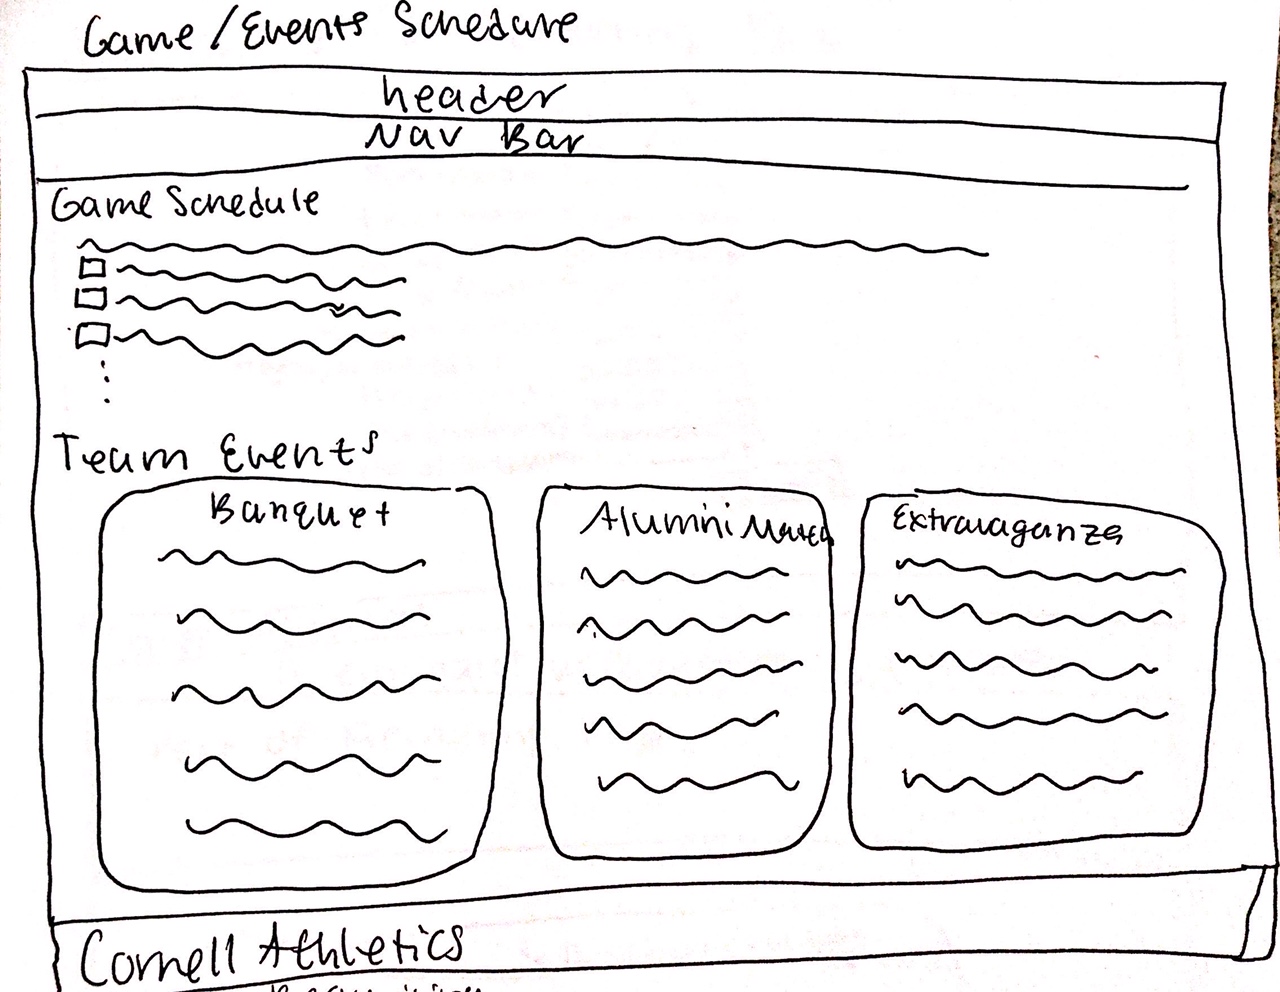 Game / Events Schedule
header
Nav Bar
Game Schedule
Team Events
Banquet
Alumni Match
Extravaganza
Cornell Athletics